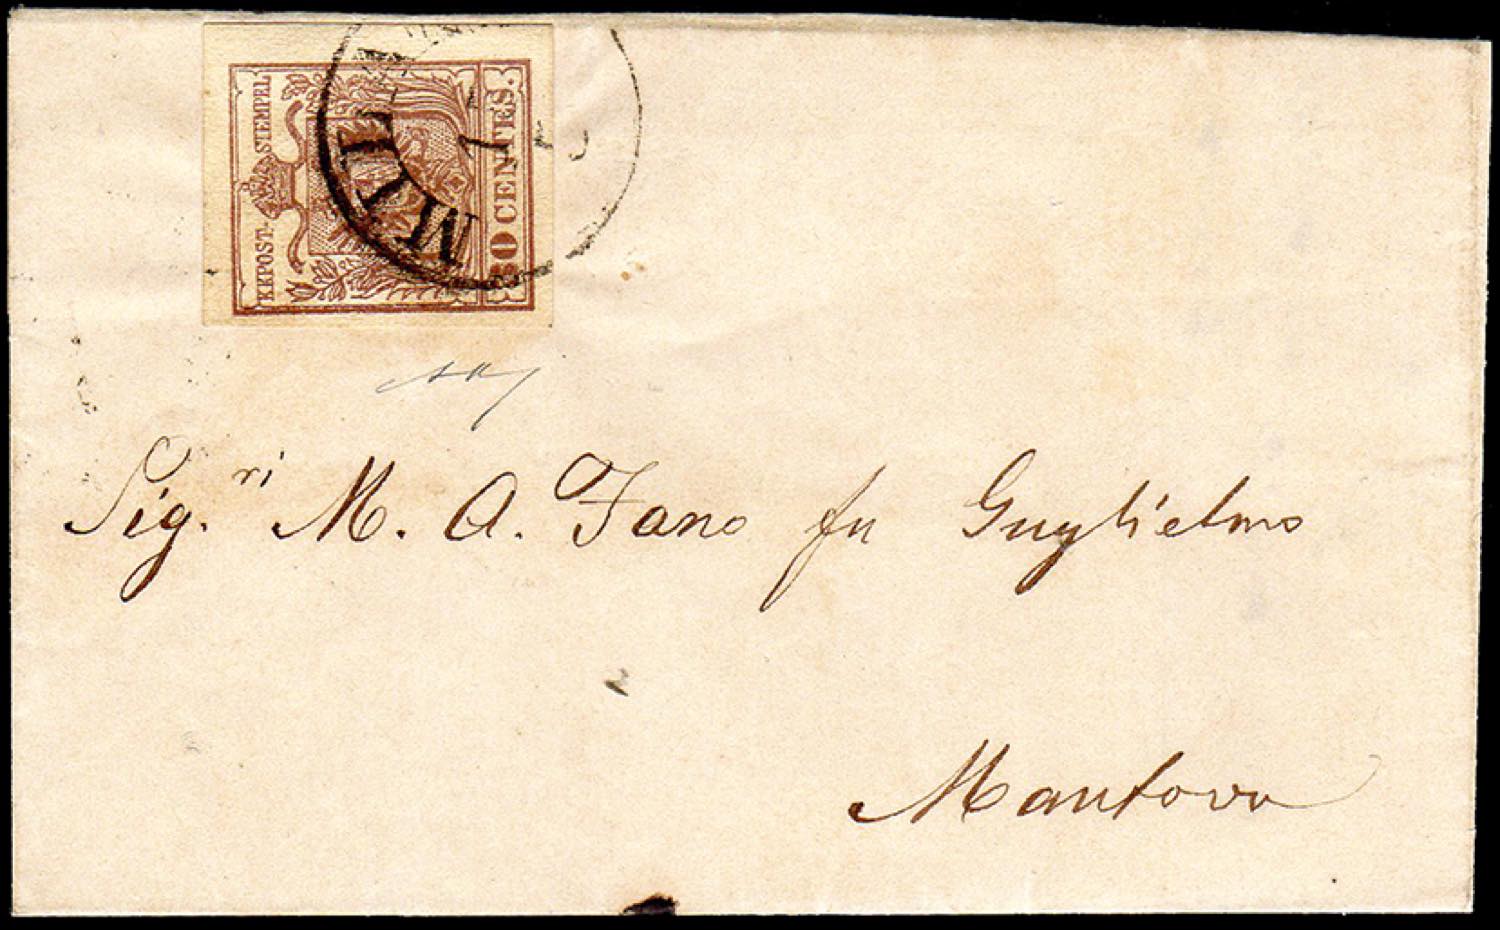 KKPOST-STEMPEL
30 CENTES.
MIL
Sig.ri M. A. Fano fu Guglielmo
Mantova